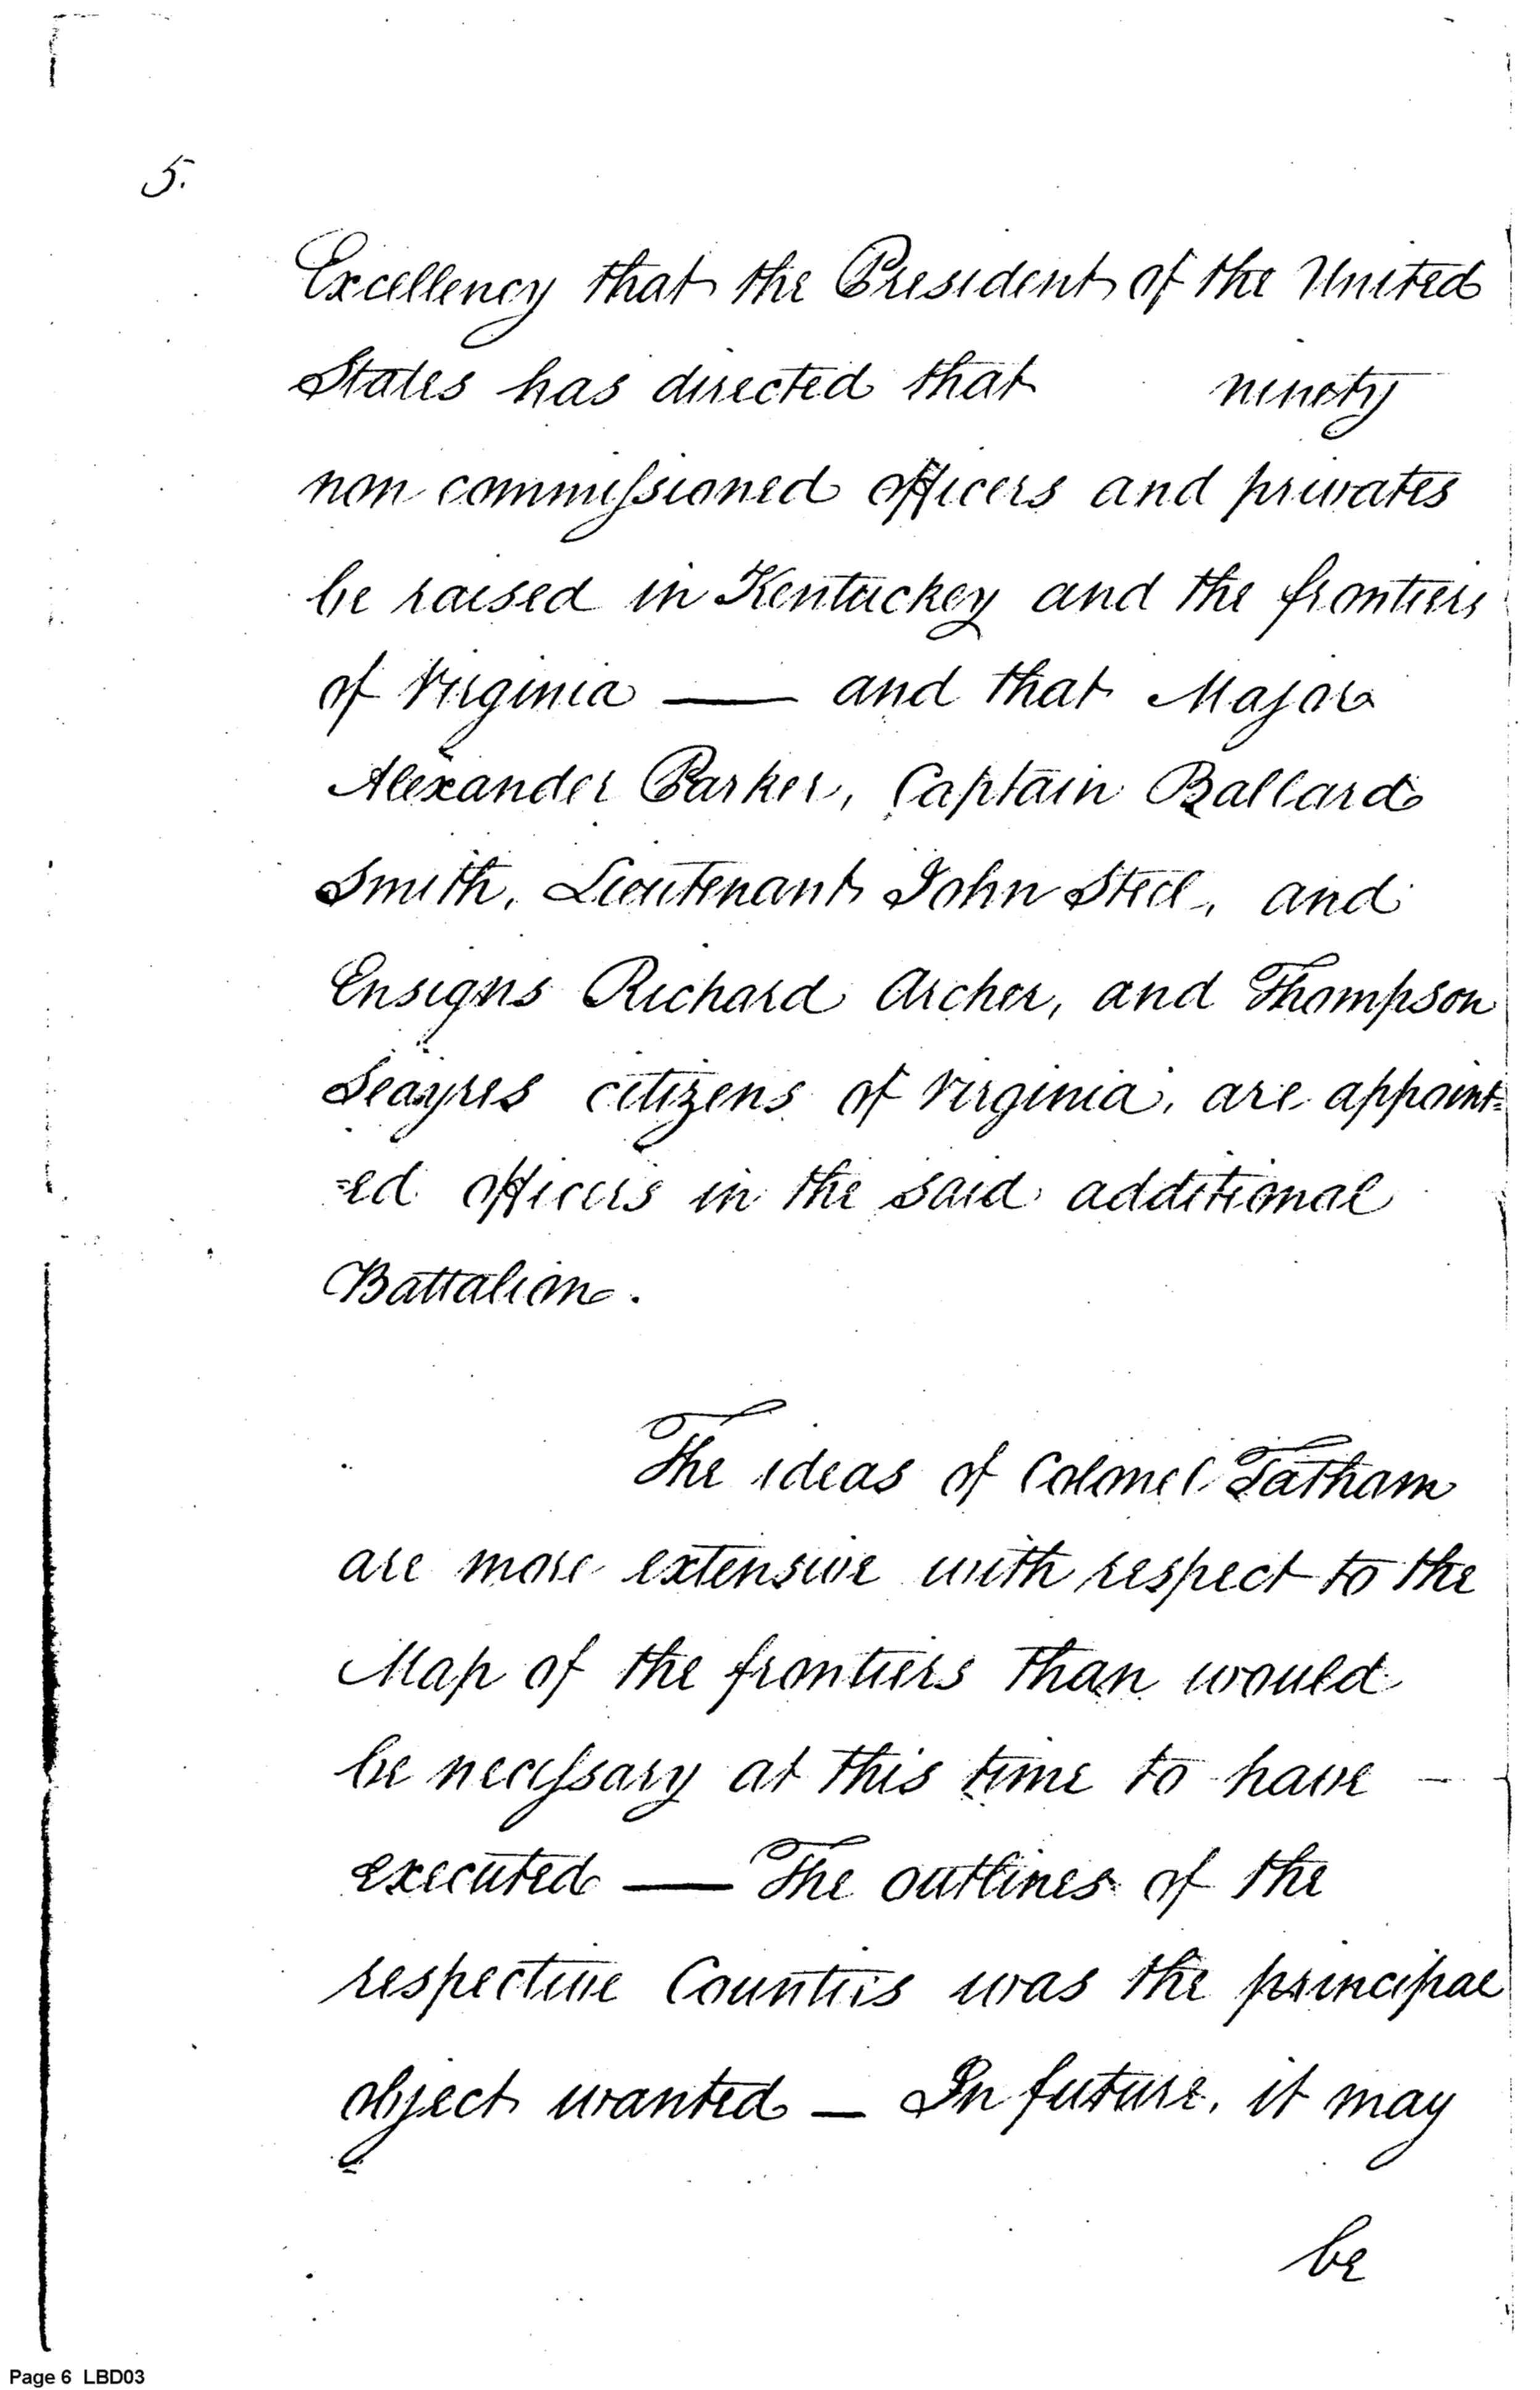 5.
Excellency that the President of the United
States has directed that ninety
non commissioned officers and privates
be raised in Kentuckey and the frontiers
of Virginia — and that Major
Alexander Parker, Captain Ballard
Smith, Lieutenant John Steel, and
Ensigns Richard Archer, and Thompson
Seayres citizens of Virginia, are appoint=
=ed officers in the said additional
Battalion.
The ideas of Colonel Tatham
are more extensive with respect to the
Map of the frontiers than would
be necessary at this time to have —
executed — The outlines of the
respective Counties was the principal
object wanted — In future, it may
be
Page 6 LBD03